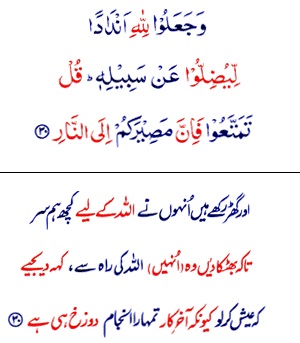 وَجَعَلُوْا لِلّٰهِ اَنْدَادًا
لِّيُضِلُّوْا عَنْ سَبِيْلِهٖ ؕ قُلْ
تَمَتَّعُوْا فَاِنَّ مَصِيْرَكُمْ اِلَى النَّارِ ﴿۳۰﴾
اور گھڑ رکھے ہیں اُنہوں نے اللہ کے لیے کچھ ہم سر
تاکہ بھٹکا دیں وہ (اُنہیں) اللہ کی راہ سے، کہہ دیجیے
کہ عیش کر لو کیونکہ آخرِ کار تمہارا انجام دوزخ ہی ہے ﴿۳۰﴾